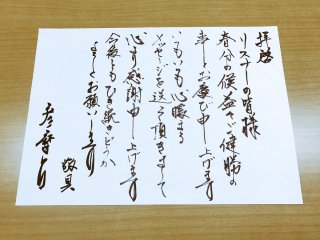 拝啓
リスナーの皆様
春分の候益々ご健勝の
事とお慶び申し上げます
いつもいつも心暖まる
メッセージを送って頂きまして
心より感謝申し上げます
今後ともひき続きどうか
よろしくお願いします
敬具
彦摩呂より